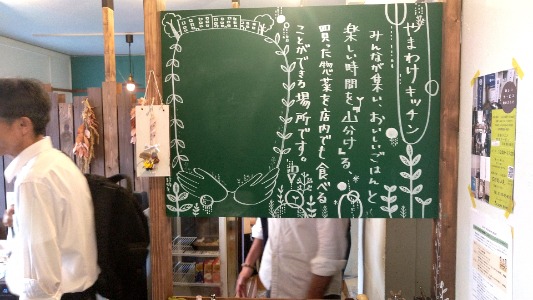 やまわけキッチン
みんなが集い、おいしいごはんと
楽しい時間を、『山分け』する、
買った惣菜を店内でも食べる
ことができる場所です。